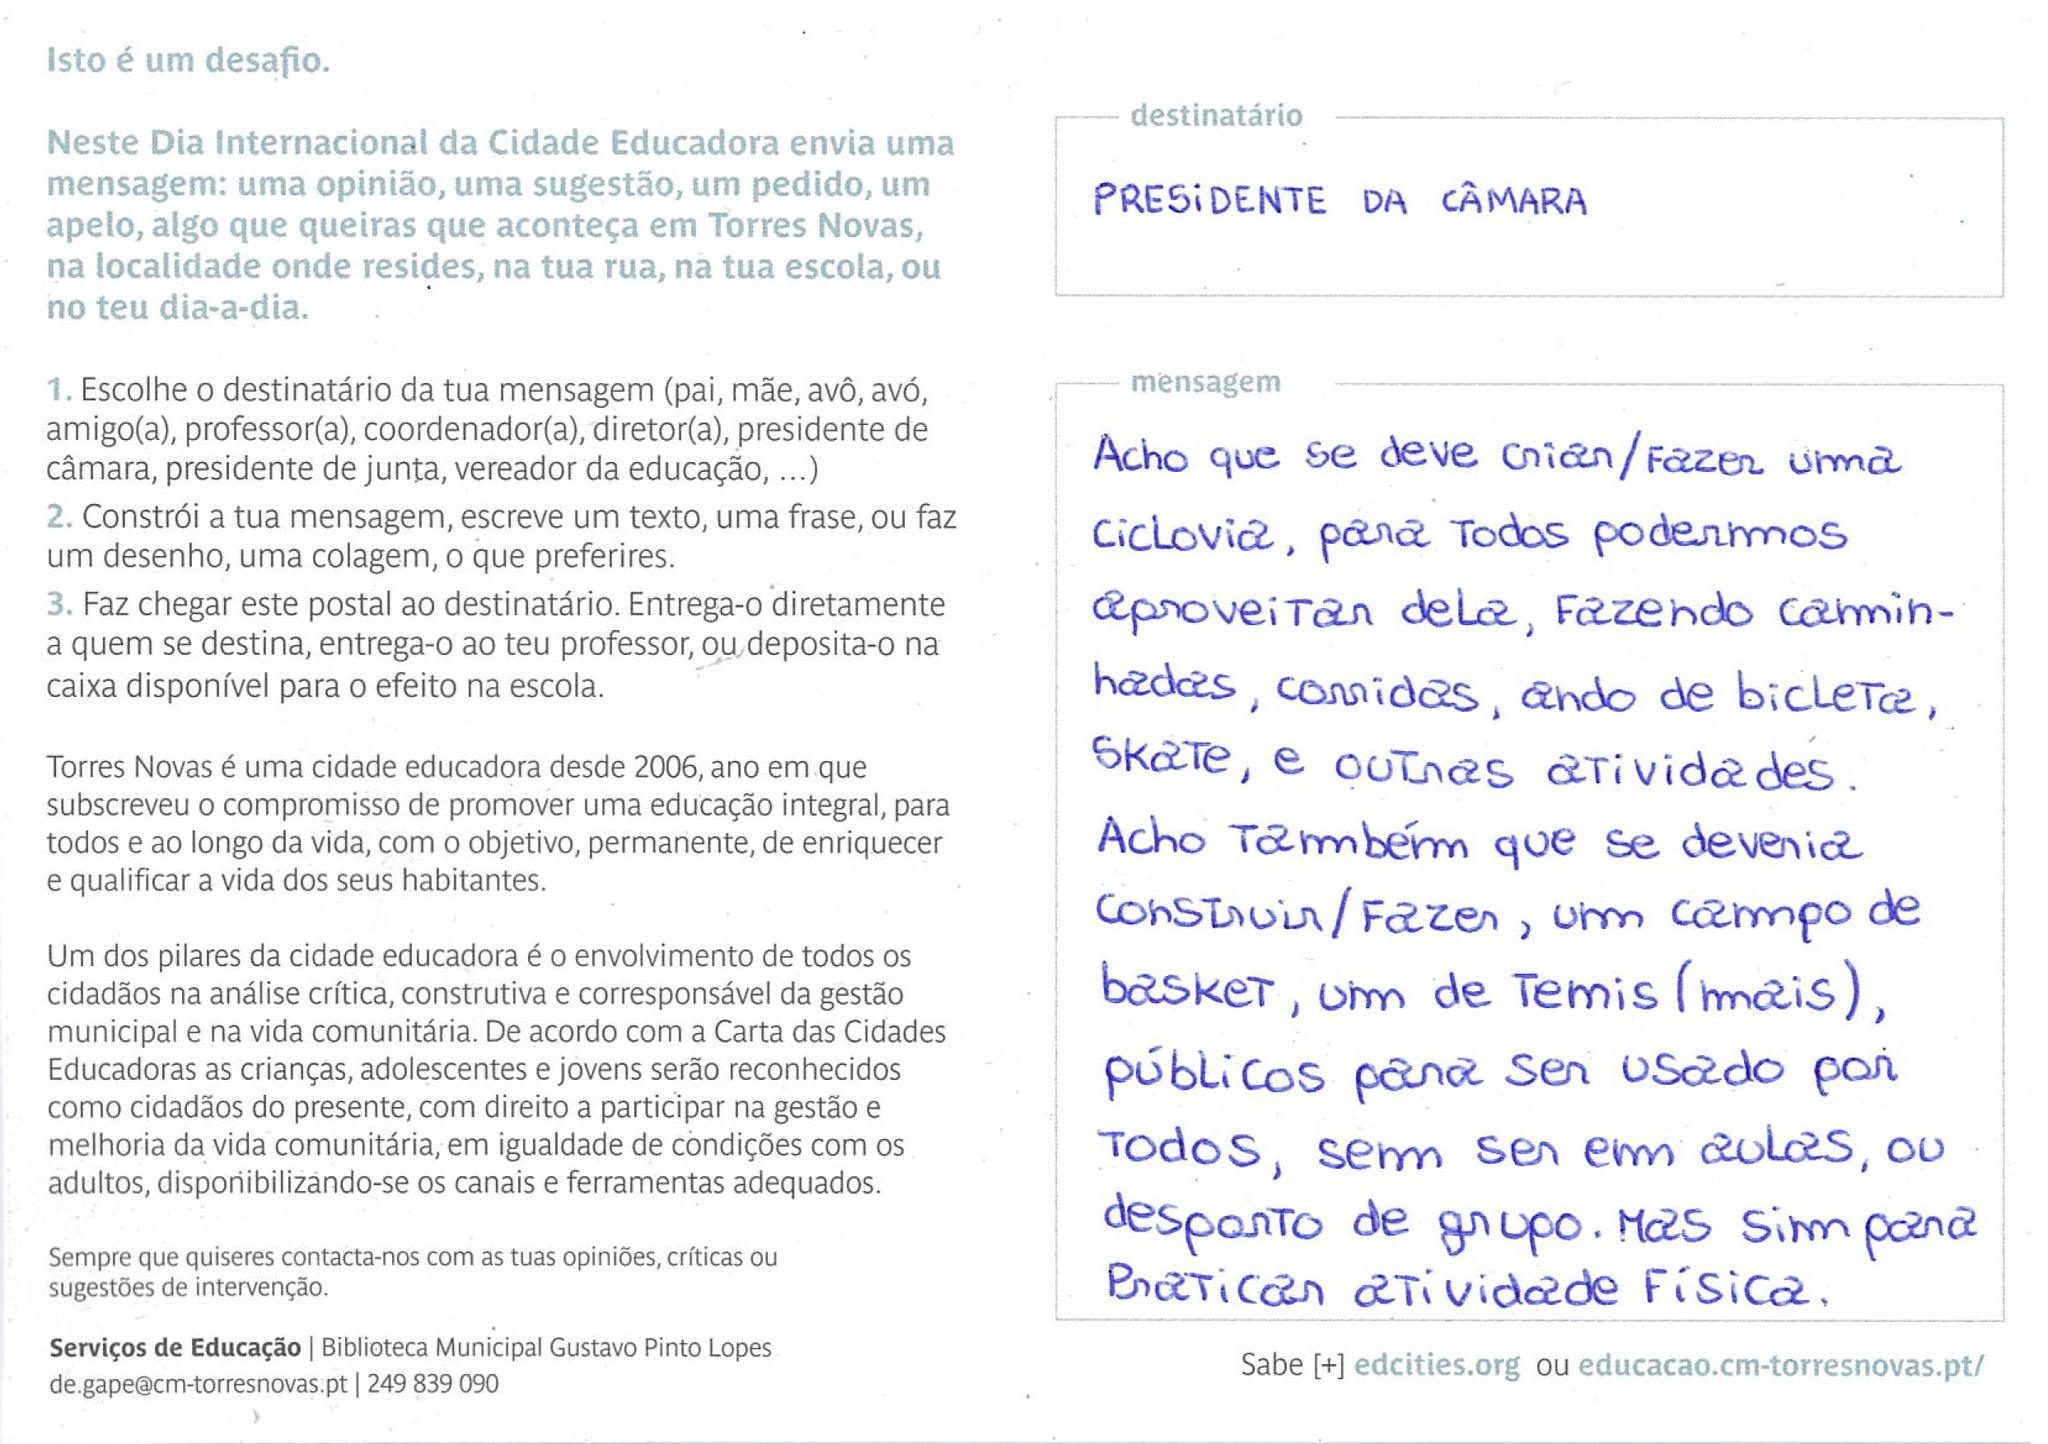 Isto é um desafio.
Neste Dia Internacional da Cidade Educadora envia uma
mensagem: uma opinião, uma sugestão, um pedido, um
apelo, algo que queiras que aconteça em Torres Novas,
na localidade onde resides, na tua rua, na tua escola, ou
no teu dia-a-dia.
1. Escolhe o destinatário da tua mensagem (pai, mãe, avô, avó,
amigo(a), professor(a), coordenador(a), diretor(a), presidente de
câmara, presidente de junta, vereador da educação, ...)
2. Constrói a tua mensagem, escreve um texto, uma frase, ou faz
um desenho, uma colagem, o que preferires.
3. Faz chegar este postal ao destinatário. Entrega-o diretamente
a quem se destina, entrega-o ao teu professor, ou deposita-o na
caixa disponível para o efeito na escola.
Torres Novas é uma cidade educadora desde 2006, ano em que
subscreveu o compromisso de promover uma educação integral, para
todos e ao longo da vida, com o objetivo, permanente, de enriquecer
e qualificar a vida dos seus habitantes.
Um dos pilares da cidade educadora é o envolvimento de todos os
cidadãos na análise crítica, construtiva e corresponsável da gestão
municipal e na vida comunitária. De acordo com a Carta das Cidades
Educadoras as crianças, adolescentes e jovens serão reconhecidos
como cidadãos do presente, com direito a participar na gestão e
melhoria da vida comunitária, em igualdade de condições com os
adultos, disponibilizando-se os canais e ferramentas adequados.
Sempre que quiseres contacta-nos com as tuas opiniões, críticas ou
sugestões de intervenção.
Serviços de Educação | Biblioteca Municipal Gustavo Pinto Lopes
de.gape@cm-torresnovas.pt | 249 839 090
destinatário
PRESIDENTE DA CÂMARA
mensagem
Acho que se deve criar/Fazer uma
ciclovia, para Todos podermos
aproveitar dela, Fazendo camin-
hadas, corridas, ando de bicleta,
Skate, e outras atividades.
Acho Também que se deveria
construir/Fazer, um campo de
basket, um de Tenis (mais),
públicos para ser usado por
Todos, sem ser em aulas, ou
desporto de grupo. Mas sim para
Praticar atividade Física.
Sabe [+] edcities.org ou educacao.cm-torresnovas.pt/